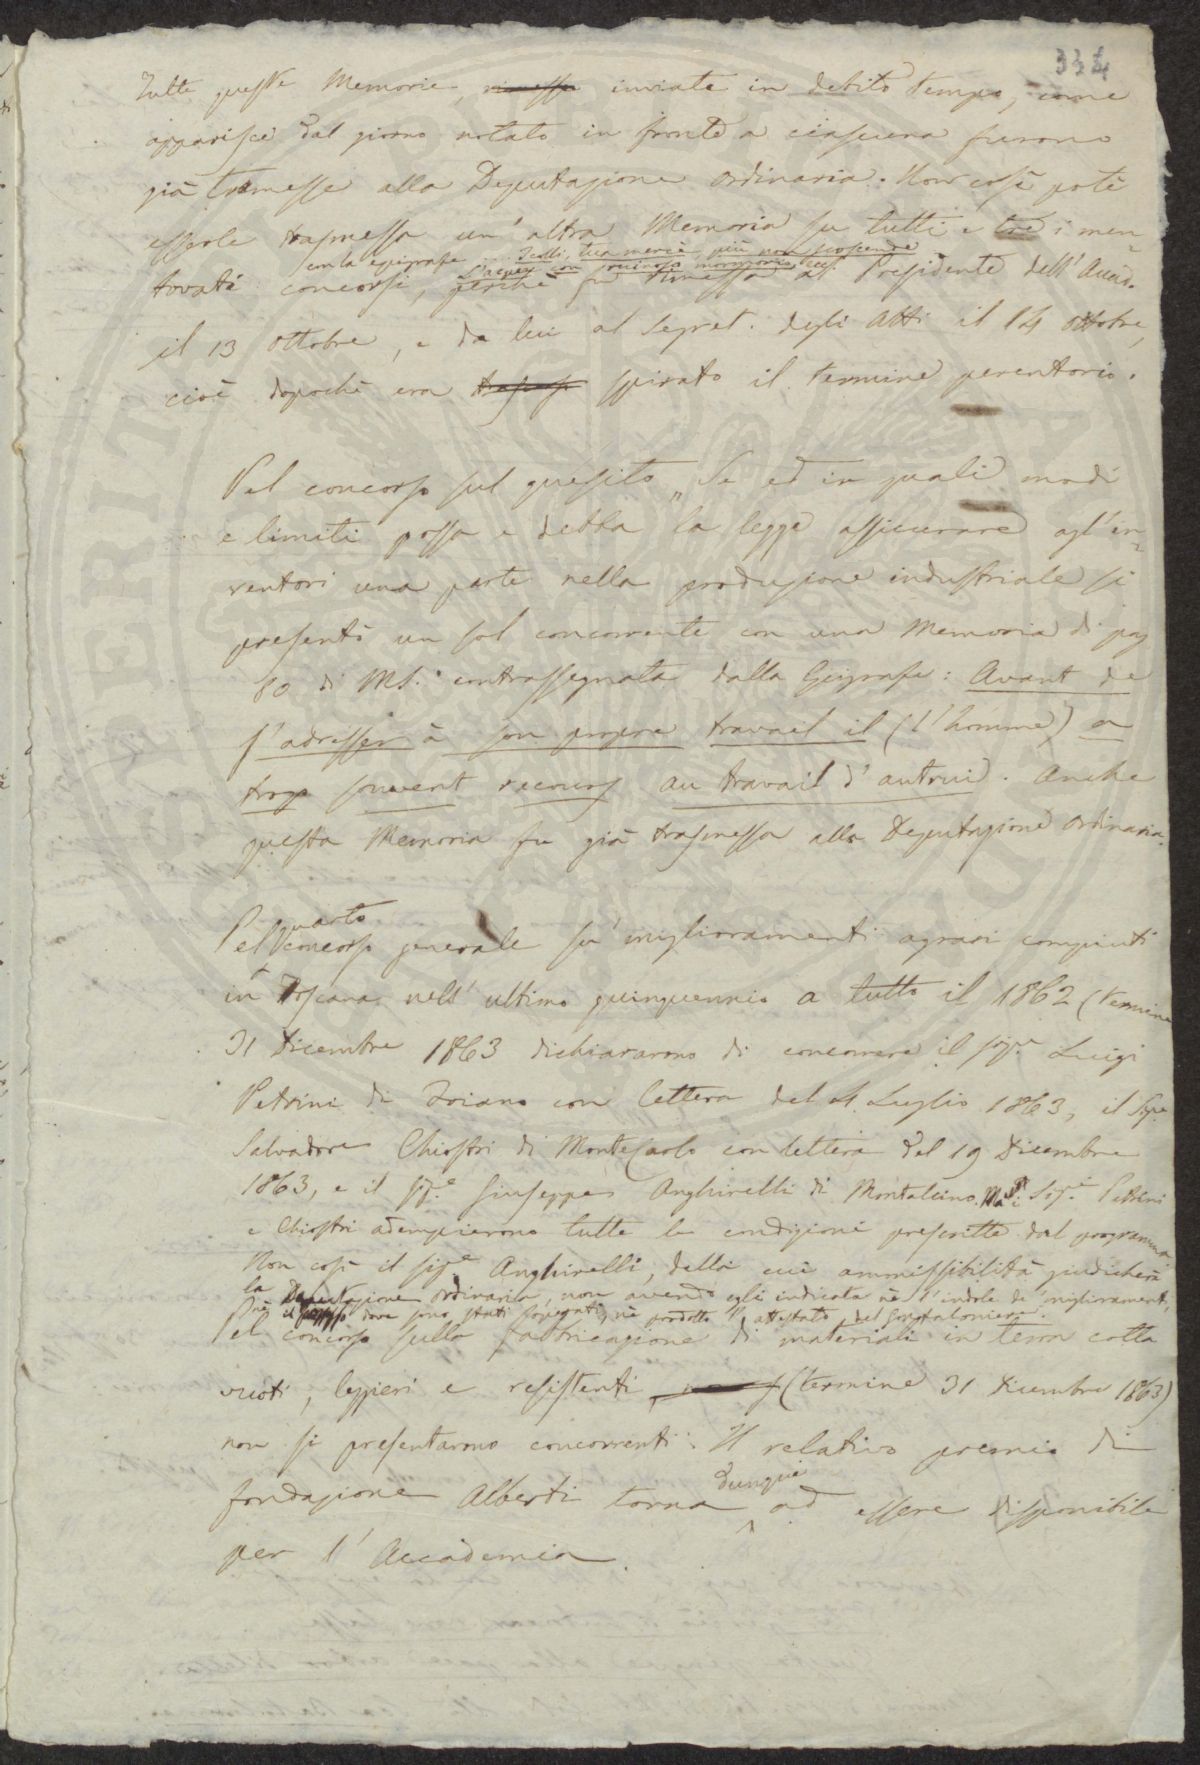 334
Tutte queste Memorie, inviate in debito tempo, come
apparisce dal giorno notato in fronte a ciascuna furono
già trasmesse alla Deputazione ordinaria. Non così potè
esserle trasmessa un'altra Memoria su tutti e tre i men-
con la epigrafe
tovati concorsi, perchè fu rimessa al Presidente dell'Accad.
il 13 ottobre, e da lui al Segret. degli Atti il 14 ottobre,
cioè dopochè era spirato il termine perentorio.
Pel concorso sul quesito „ Se ed in quali modi
e limiti possa e debba la legge assicurare agl'in-
ventori una parte nella produzione industriale si
presentò un sol concorrente con una Memoria di pag
80 di MS. contrassegnata dalla Epigrafe: Avant de
s'adresser à son propre travail il (l'homme) a
trop souvent recours au travail d'autrui. Anche
questa Memoria fu già trasmessa alla Deputazione ordinaria.
quarto
Pel concorso generale su' miglioramenti agrari compiuti
in Toscana nell'ultimo quinquennio a tutto il 1862 (termine
31 Dicembre 1863 dichiararono di concorrere il sig.re Luigi
Petrini di Foiano con lettera del 4 Luglio 1863, il Sig.re
Salvadore Chiostri di MonteCarlo con lettera del 19 Dicembre
1863, e il sig.re Giuseppe Anghirelli di Montalcino. Ma i Sig.i Petrini
e Chiostri adempierono tutte le condizioni prescritte dal programma
Non così il sig.re Anghirelli, della cui ammissibilità giudicherà
la Deputazione ordinaria, non avendo egli indicata nè l'indole de' miglioramenti,
nè il dove sono stati eseguiti, nè prodotto l'attestato del Gonfaloniere.
Pel concorso sulla fabbricazione di materiali in terra cotta
vuoti, leggieri e resistenti, (termine 31 Dicembre 1863)
non si presentarono concorrenti: Il relativo premio di
dunque
fondazione Alberti torna ad essere disponibile
per l'Accademia.